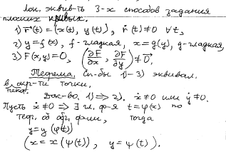 Лок. эквив-ть 3-х способов задания
плоских кривых.
1) r⃗(t) = (x(t), y(t)), ṙ(t) ≠ 0 ∀t,
2) y = f(x), f - гладкая, x = g(y), g - гладкая,
3) F(x,y) = 0, (∂F/∂x, ∂F/∂y) ≠ 0⃗.
Теорема. Сп-бы 1) - 3) эквивал.
в окр-ти точки.
Док-во. 1) ⇒ 2). ẋ ≠ 0 или ẏ ≠ 0.
Пусть ẋ ≠ 0 ⇒ ∃ ф-я t = φ(x) по
теор. об обр. ф-ии, тогда
y = y(φ(x))
(x = x(ψ(t)), y = ψ(t)).